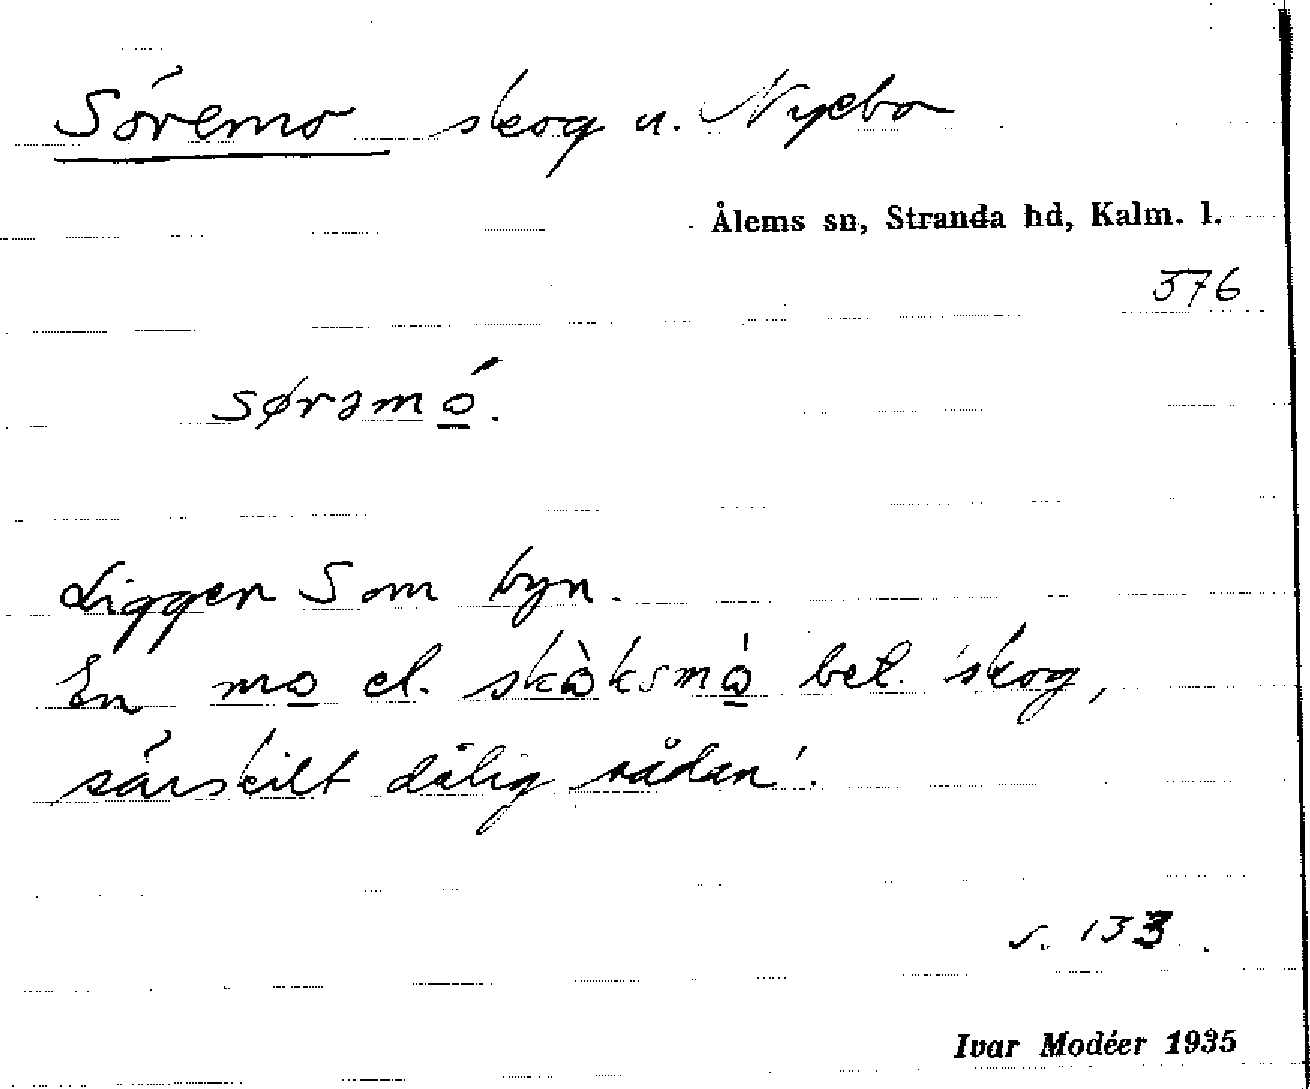 Söremo skog u. Nyebo
Ålems sn, Stranda hd, Kalm. l.
376
sørəmó.
Ligger S om byn.
En mo el. skòksmò bet. 'skog,
särskilt dålig sådan'.
s. 133
Ivar Modéer 1935